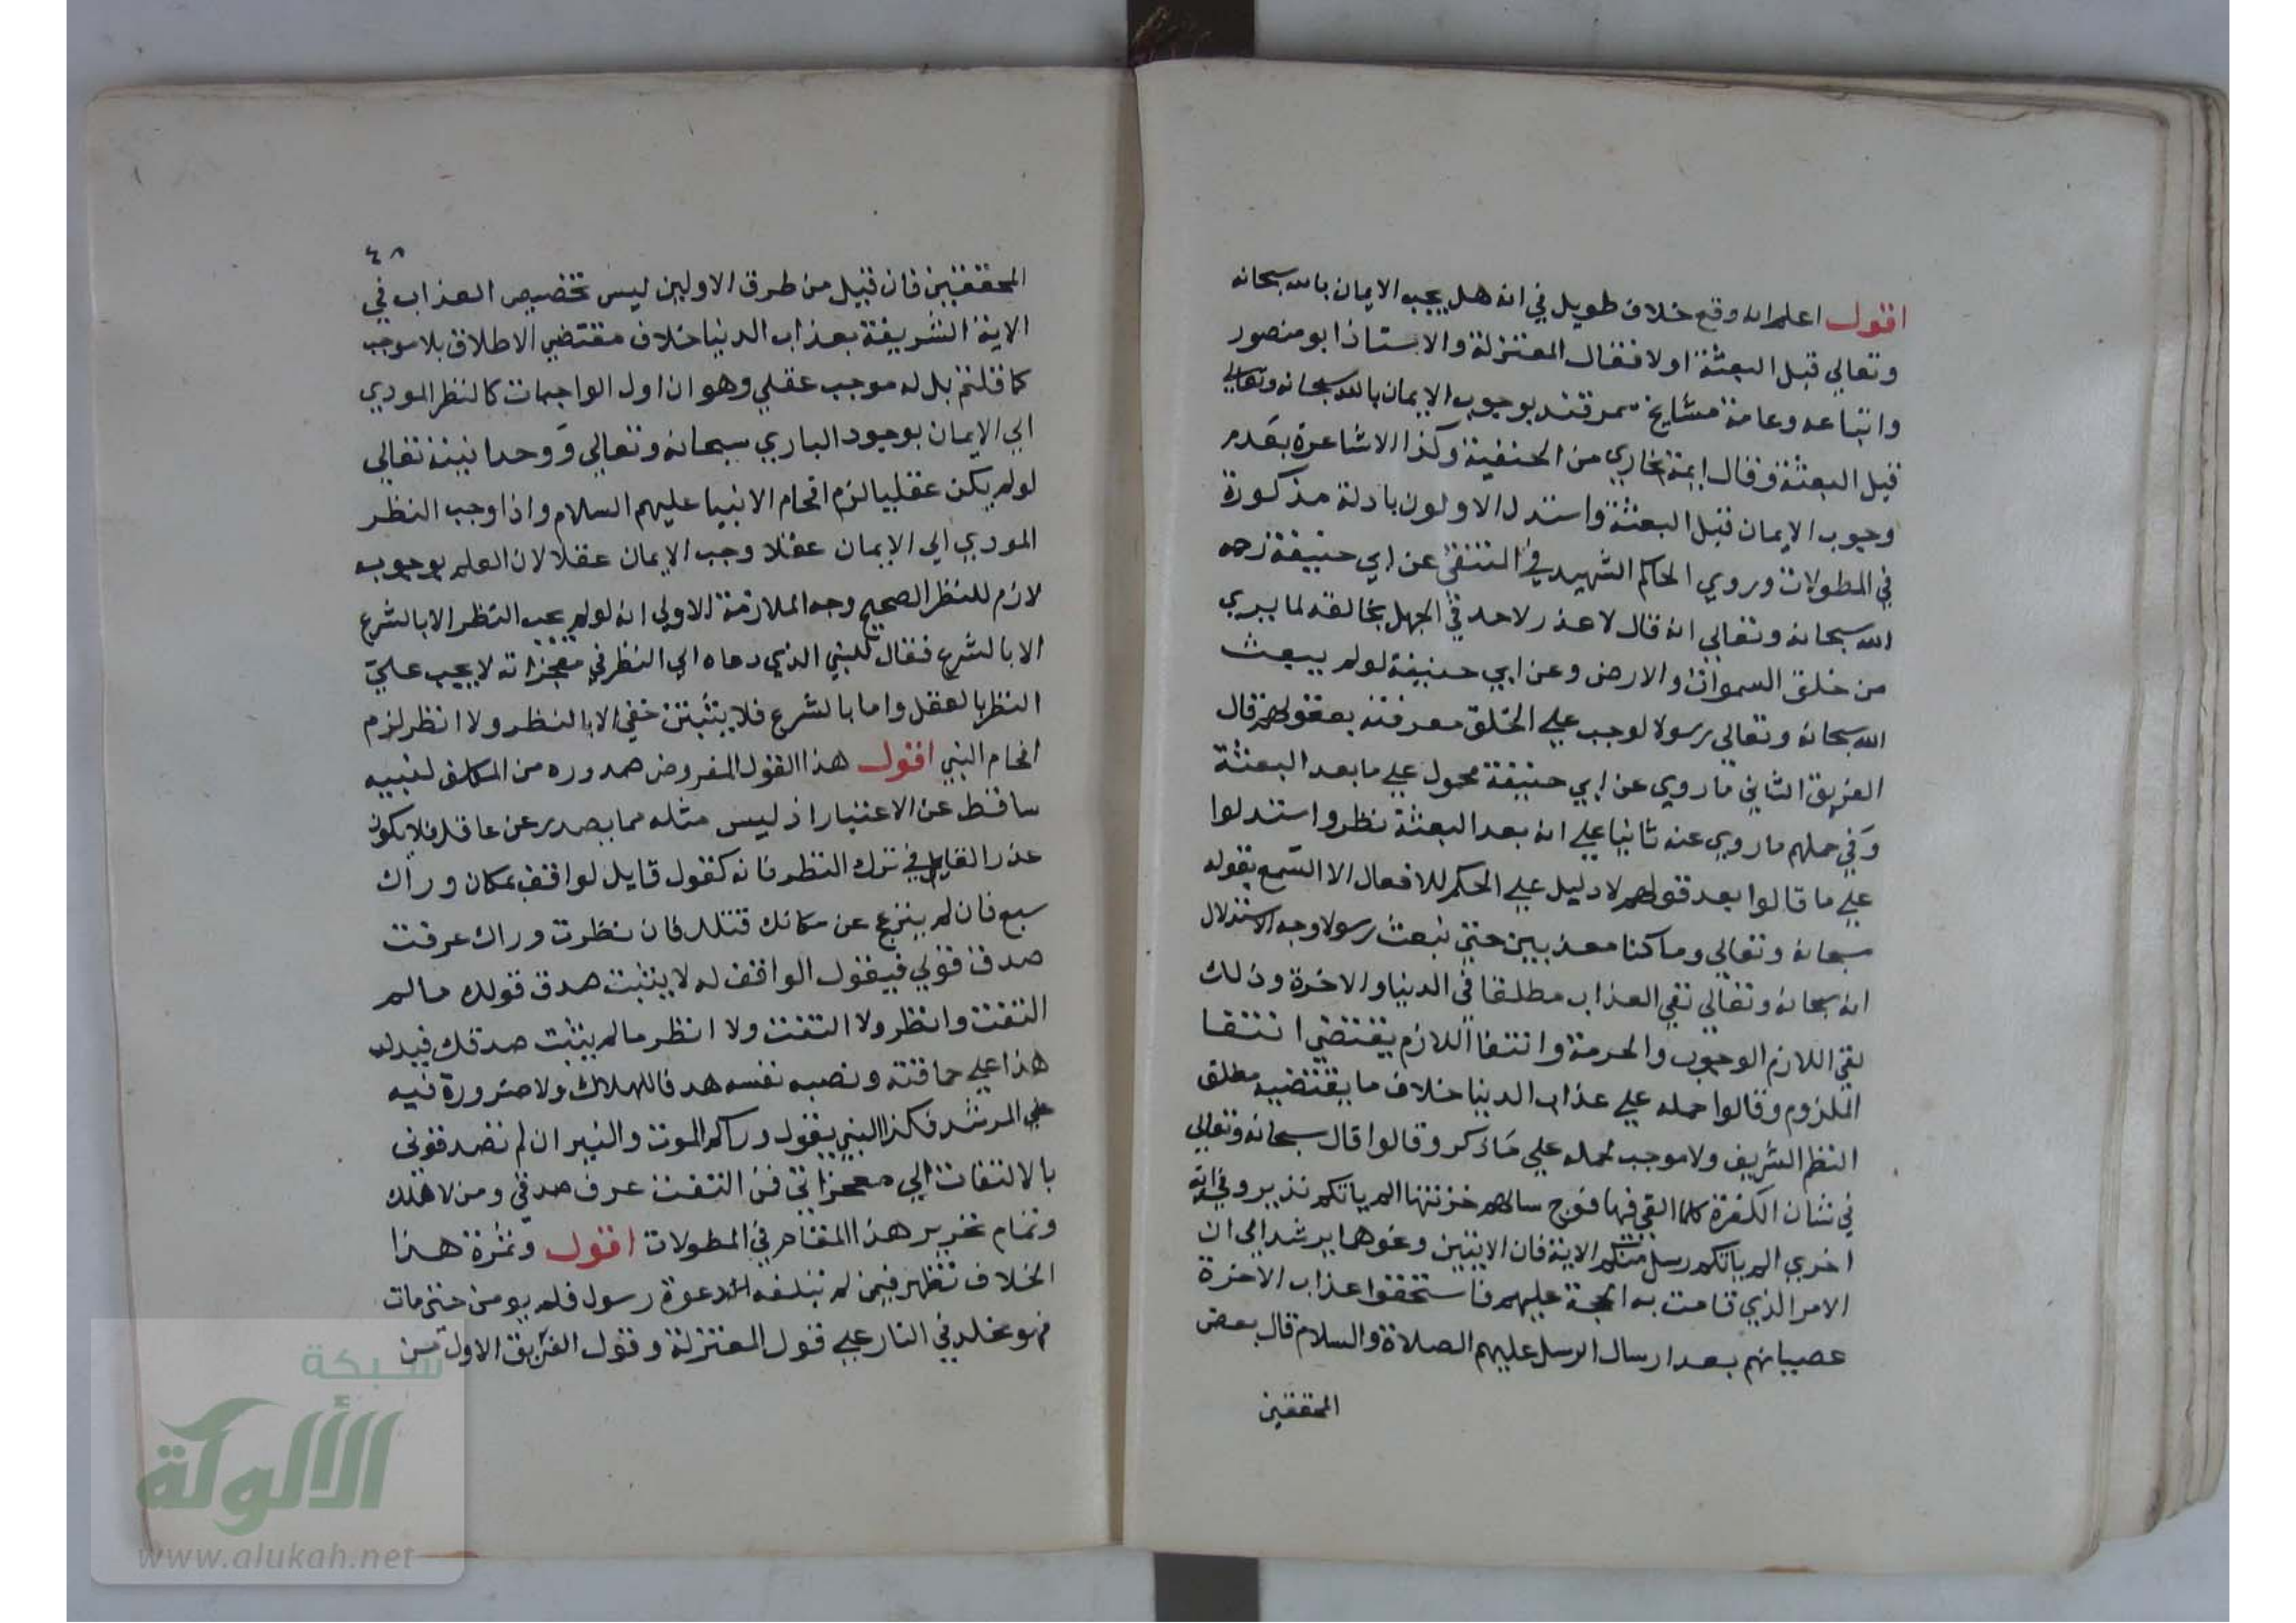 اقول اعلم انه وقع خلاف طويل في انه هل يجب الايمان بالله سبحانه
وتعالي قبل البعثة اولا فقال المعتزلة والاستاذ ابو منصور
واتباعه وعامة مشايخ سمرقند بوجوب الايمان بالله سبحانه وتعالي
قبل البعثة وقال ايمة بخاري من الحنفية وكذا الاشاعرة بعدم
وجوب الايمان قبل البعثة واستدل الاولون بادلة مذكورة
في المطولات وروي الحاكم الشهيد في المنتقي عن ابي حنيفة رحمه
الله سبحانه وتعالي انه قال لا عذر لاحد في الجهل بخالقه لما يري
من خلق السموات والارض وعن ابي حنيفة لو لم يبعث
الله سبحانه وتعالي رسولا لوجب علي الخلق معرفته بعقولهم قال
الفريق الثاني ما روي عن ابي حنيفة محمول علي ما بعد البعثة
وفي حملهم ما روي عنه ثانيا علي انه بعد البعثة نظر واستدلوا
علي ما قالوا بعد قولهم لا دليل علي الحكم للافعال الا السمع بقوله
سبحانه وتعالي وما كنا معذبين حتي نبعث رسولا وجه الاستدلال
انه سبحانه وتعالي نفي العذاب مطلقا في الدنيا والاخرة وذلك
نفي اللازم الوجوب والحرمة وانتفا اللازم يقتضي انتفا
الملزوم وقالوا حمله علي عذاب الدنيا خلاف ما يقتضيه مطلق
النظم الشريف ولا موجب لحمله علي ما ذكر وقالوا قال سبحانه وتعالي
في شان الكفرة كلما القي فيها فوج سالهم خزنتها الم ياتكم نذير وفي اية
اخري الم ياتكم رسل منكم الاية فان الايتين ونحوهما يرشد الي ان
الامر الذي قامت به الحجة عليهم فاستحقوا عذاب الاخرة
عصيانهم بعد ارسال الرسل عليهم الصلاة والسلام قال بعض
المحققين
٤٨
المحققين فان قيل من طرق الاولين ليس تخصيص العذاب في
الاية الشريفة بعذاب الدنيا خلاف مقتضي الاطلاق بلا موجب
كما قلتم بل له موجب عقلي وهو ان اول الواجبات كالنظر المودي
الي الايمان بوجود الباري سبحانه وتعالي ووحدانيته تعالي
لو لم يكن عقليا لزم افحام الانبيا عليهم السلام واذا وجب النظر
المودي الي الايمان عقلا وجب الايمان عقلا لان العلم بوجوبه
لازم للنظر الصحيح وجه الملازمة الاولي انه لو لم يجب النظر الا بالشرع
الا بالشرع فقال للنبي الذي دعاه الي النظر في معجزاته لا يجب علي
النظر بالعقل واما بالشرع فلا يثبت في حقي الا بالنظر ولا انظر لزم
افحام النبي اقول هذا القول المفروض صدوره من المكلف لنبيه
ساقط عن الاعتبار اذ ليس مثله مما يصدر عن عاقل فلا يكون
عذر القايل في ترك النظر فانه كقول قايل لواقف بمكان وراك
سبع فان لم ينزع عن مكانك قتلك فان نظرت وراك عرفت
صدق قولي فيقول الواقف له لا يثبت صدق قولك مالم
التفت وانظر ولا التفت ولا انظر مالم يثبت صدقك فيدل
هذا علي حماقته ونصبه نفسه هدفا للهلاك ولا ضرورة فيه
علي المرشد فكذا النبي يقول وراكم الموت والنيران لم تصدقوني
بالالتفات الي معجزاتي فمن التفت عرف صدقي ومن لا هلك
وتمام تحرير هذا المقام في المطولات اقول وثمرة هذا
الخلاف تظهر فيمن لم تبلغه الدعوة رسول فلم يومن حتي مات
فهو مخلد في النار علي قول المعتزلة وقول الفريق الاول من
شبكة
الألوكة
www.alukah.net